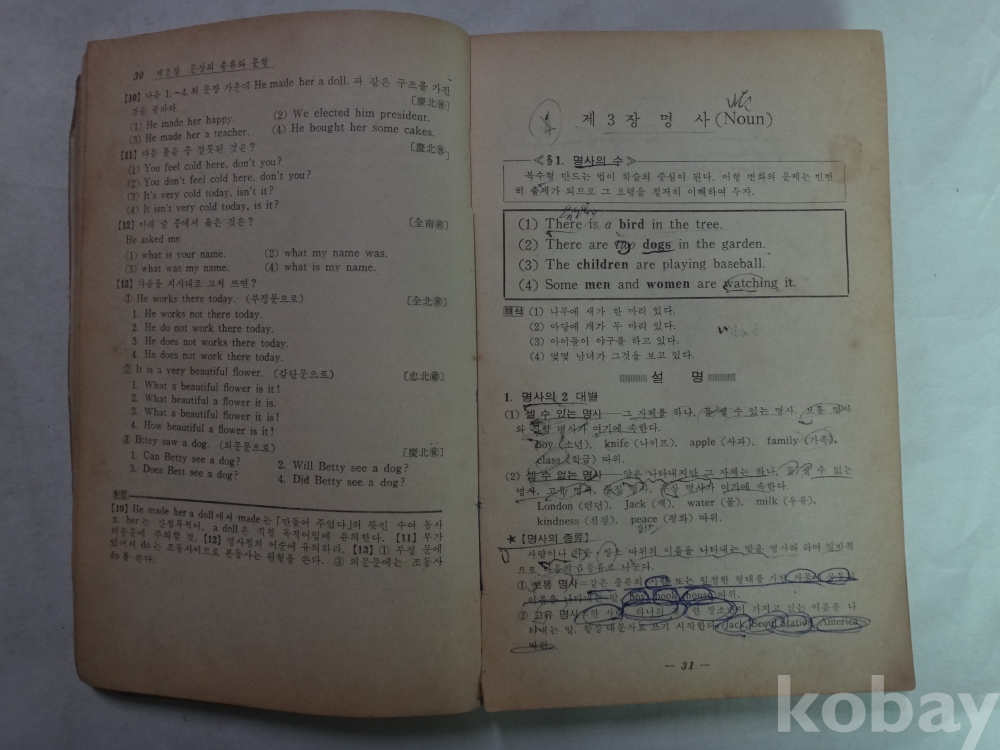 30 제2장 문장의 종류와 문형
【10】 다음 1.~4.의 문장 가운데 He made her a doll. 과 같은 구조를 가진
것을 골라라. 〔慶北
(1) He made her happy. (2) We elected him president.
(3) He made her a teacher. (4) He bought her some cakes.
【11】 다음 물음 중 잘못된 것은? 〔慶北
(1) You feel cold here, don't you?
(2) You don't feel cold here, don't you?
(3) It's very cold today, isn't it?
(4) It isn't very cold today, is it?
【12】 아래 글 중에서 옳은 것은? 〔全南
He asked me
(1) what is your name. (2) what my name was.
(3) what was my name. (4) what is my name.
【13】 다음을 지시대로 고쳐 쓰면?
① He works there today. (부정문으로) 〔全北
1. He works not there today.
2. He do not work there today.
3. He does not works there today.
4. He does not work there today.
② It is a very beautiful flower. (감탄문으로) 〔忠北
1. What a beautiful flower is it!
2. What beautiful a flower it is.
3. What a beautiful flower it is!
4. How beautiful a flower it is!
③ Bttey saw a dog. (의문문으로) 〔慶北
1. Can Betty see a dog? 2. Will Betty see a dog?
3. Does Bett see a dog? 4. Did Betty see a dog?
힌트
【10】 He made her a doll에서 made는 「만들어 주었다」의 뜻인 수여 동사
로 her는 간접목적어, a doll은 직접 목적어임에 유의한다. 【11】 부가
의문문에 주의할 것. 【12】 명사절의 어순에 유의하라. 【13】 ① 부정 문에
있어서 do는 조동사이므로 본동사는 원형을 쓴다. ③ 의문문에는 조동사
do를 쓴다.
제 3 장 명 사 (Noun)
≪§1. 명사의 수≫
복수형 만드는 법이 학습의 중심이 된다. 어형 변화의 문제는 빈번
히 출제가 되므로 그 요령을 철저히 이해하여 두자.
(1) There is a bird in the tree.
(2) There are dogs in the garden.
(3) The children are playing baseball.
(4) Some men and women are watching it.
해석 (1) 나무에 새가 한 마리 있다.
(2) 마당에 개가 두 마리 있다.
(3) 아이들이 야구를 하고 있다.
(4) 몇몇 남녀가 그것을 보고 있다.
설 명
1. 명사의 2 대별
(1) 셀 수 있는 명사—그 자체를 하나, 둘 셀 수 있는 명사. 보통 명사
와 집합 명사가 여기에 속한다.
boy (소년), knife (나이프), apple (사과), family (가족),
class (학급) 따위.
(2) 셀 수 없는 명사—양은 나타내지만 그 자체는 하나, 둘 셀 수 없는
명사. 고유 명사, 물질 명사, 추상 명사가 여기에 속한다.
London (런던), Jack (잭), water (물), milk (우유),
kindness (친절), peace (평화) 따위.
★【명사의 종류】
사람이나 사물·장소 따위의 이름을 나타내는 말을 명사라 하며 일반적
으로 다음의 종류로 나눈다.
① 보통 명사=같은 종류의 사람 또는 일정한 형태를 가진 사물에 공통의
이름을 나타내는 말. boy, book, house 따위.
② 고유 명사=한 사람, 하나의 한 장소 가지고 있는 이름을 나
타내는 말. 항상 대문자로 쓰기 시작한다. Jack, Seoul Station, America
따위.
— 31 —
kobay